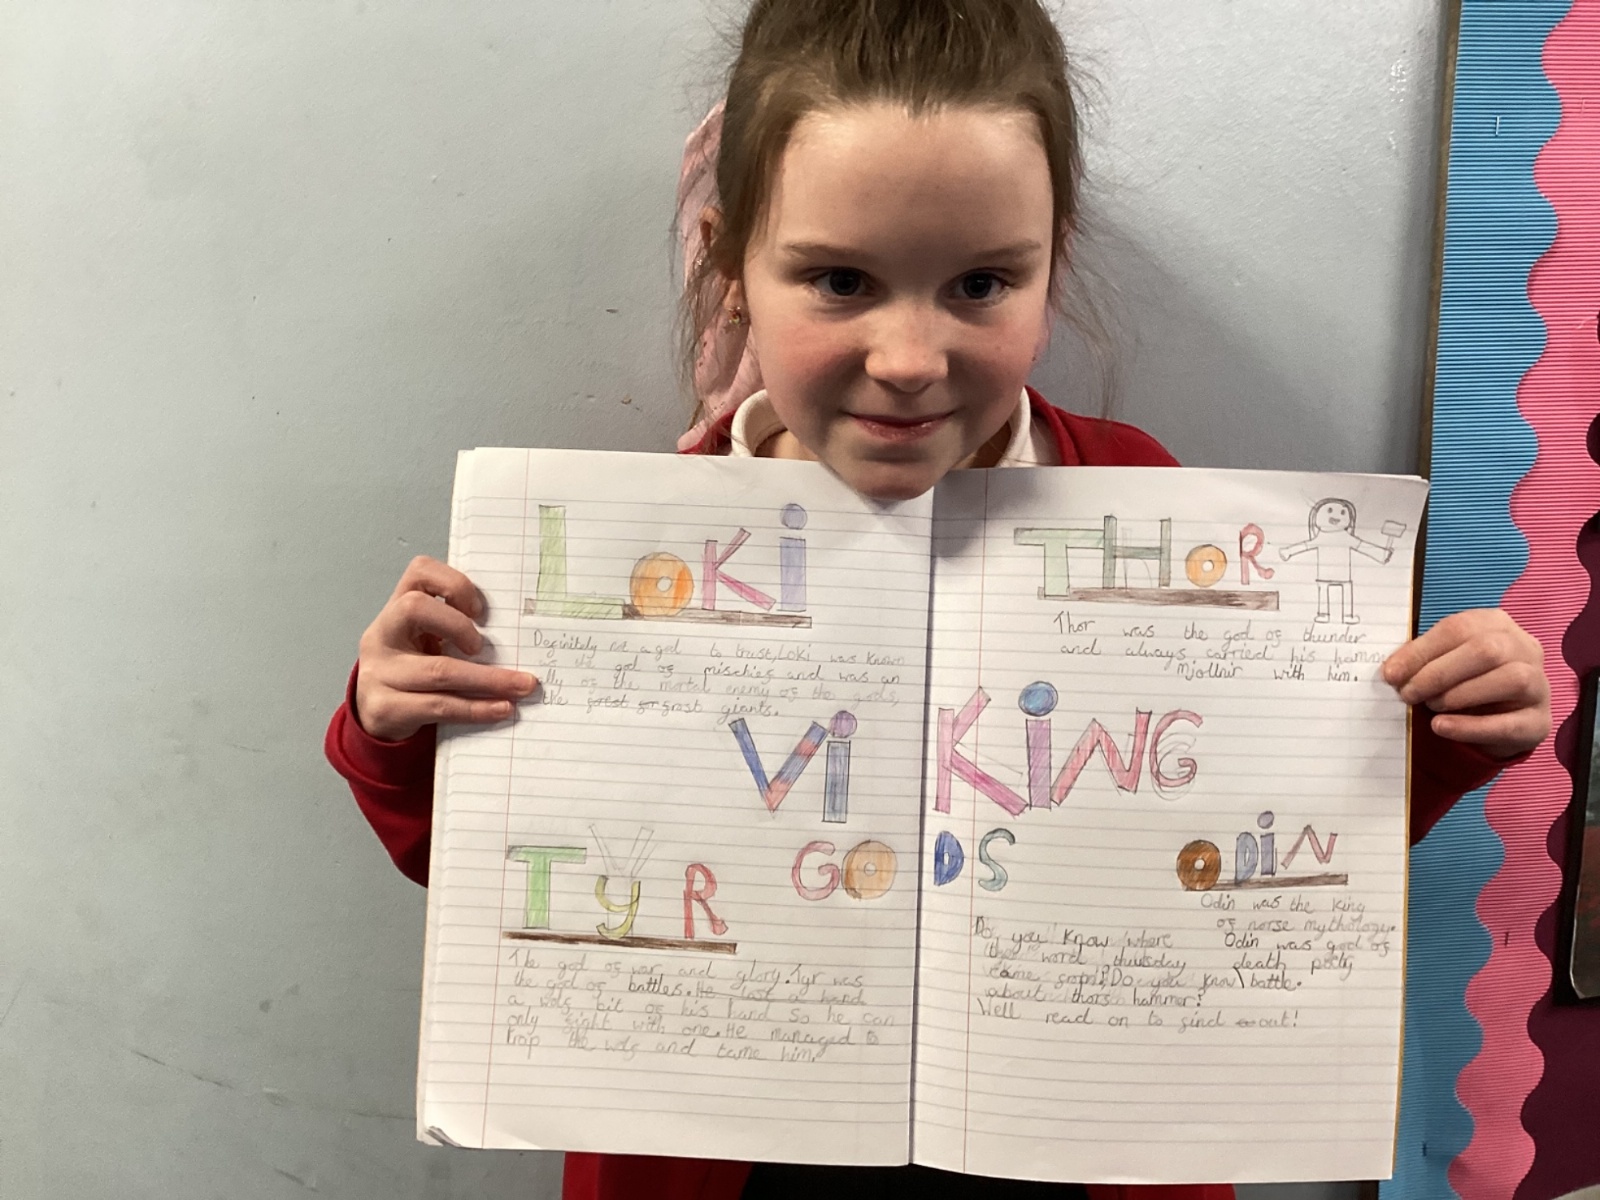 LOKi
Definitely not a god to trust, Loki was known
as the god of mischief and was an
ally of the mortal enemy of the gods,
the frost giants.
THOR
Thor was the god of thunder
and always carried his hamm
Mjollnir with him.
ViKiNG
GODS
TyR
The god of war and glory. Tyr was
the god of battles. He lost a hand
a wolf bit of his hand so he can
only fight with one. He managed to
trap the wolf and tame him.
ODiN
Odin was the king
of norse mythology.
Odin was god of
death poetry
battle.
Do you know where
the word thursday
came from? Do you know
about thors hammer?
Well read on to find out!